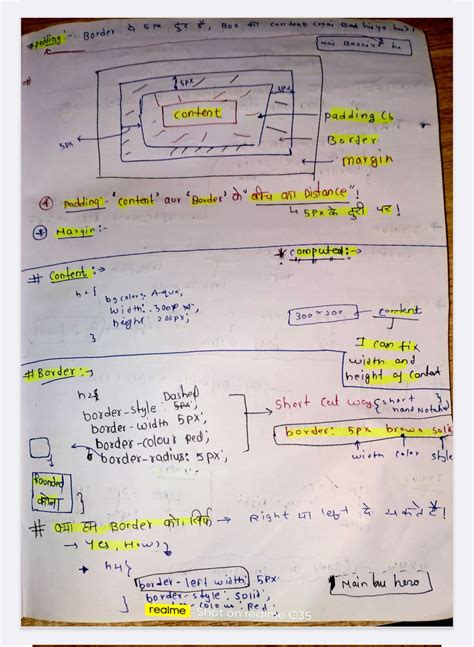 * Padding:- Border से 5px दूर है, Box का content
main Badhiya hu
5px
5px
content
5px
padding
Border
margin
* Padding:- 'Content' aur 'Border' के "बीच का Distance"!
↳ 5px के दूरी पर!
* Margin:-
* computed:→
# Content:→
h2{
bgcolor: Aqua;
width: 300px;
height: 200px;
}
300×200
content
I can fix
width and
height of Content
# Border:→
h2{
border-style: Dashed
border-width 5px;
border-colour Red;
border-radius: 5px;
}
Short Cut way {short hand Notation}
border: 5px brown solid
width color style
Rounded
कोना
# क्या हम Border को, सिर्फ → Right या left दे सकते हैं!
→ Yes, How?
h4{
border-left width: 5px
border-style: solid;
Red
}
Main hu hero
realme Shot on realme C35